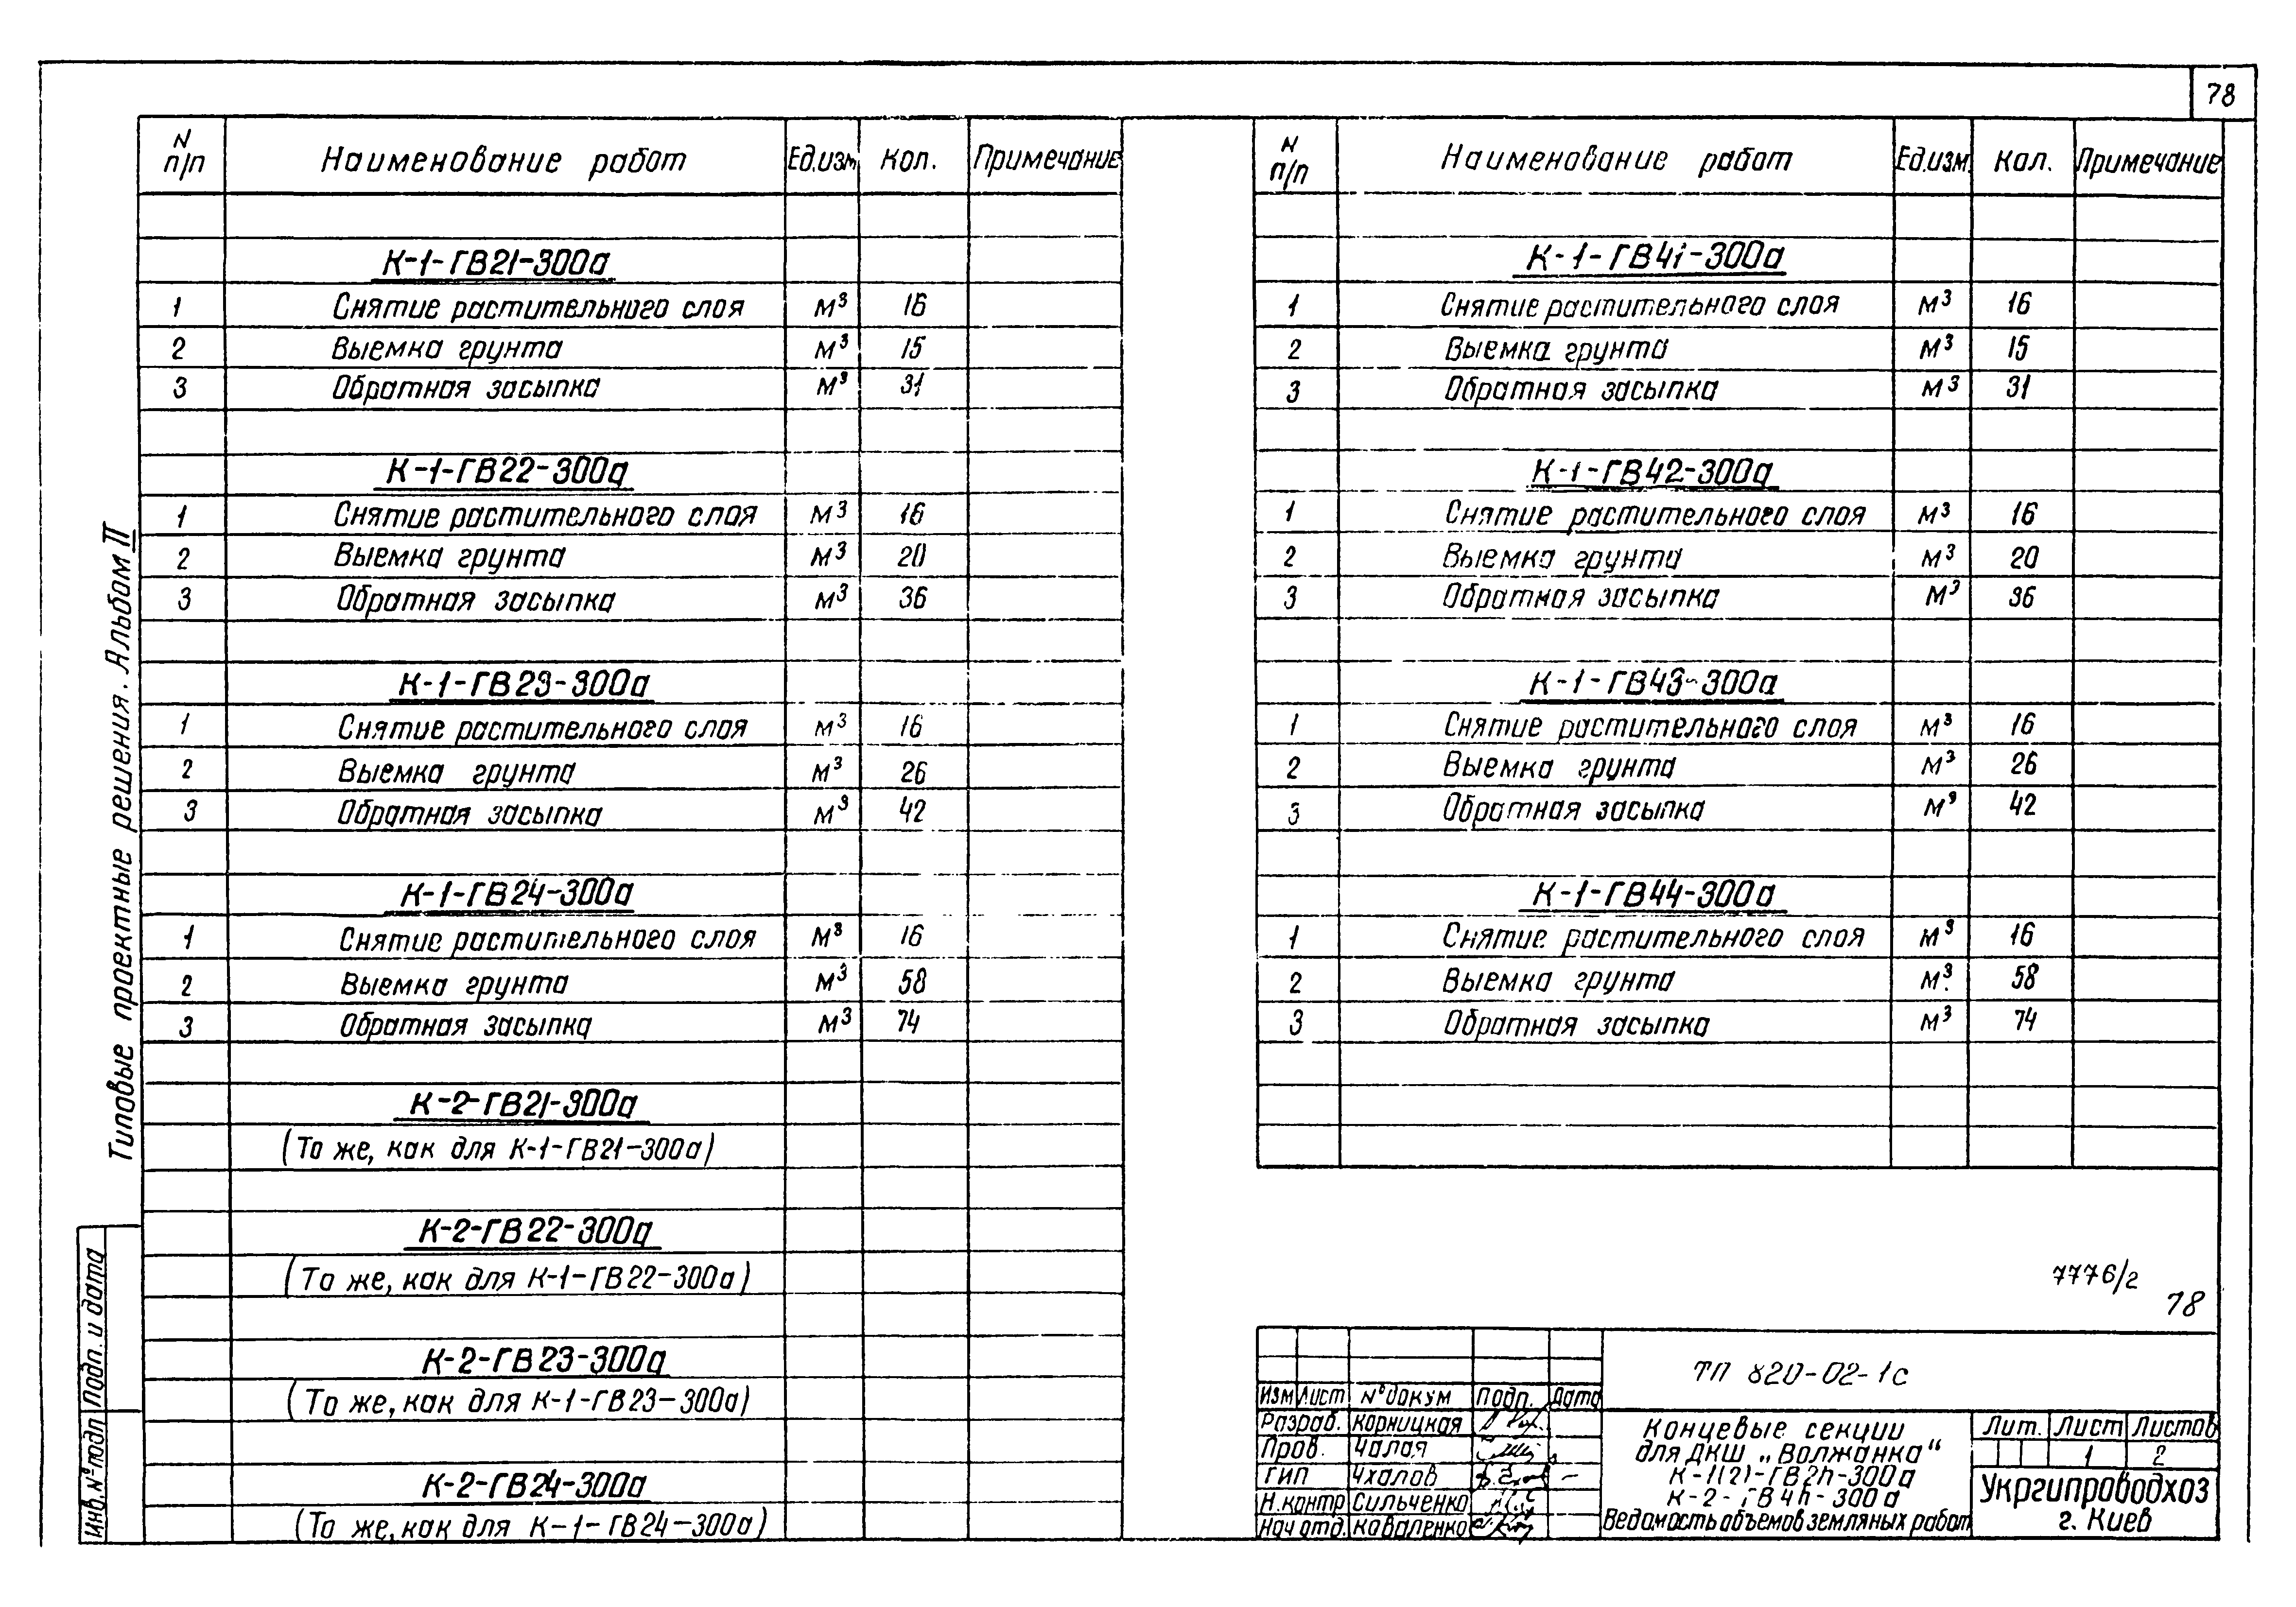 78
N п/п Наименование работ Ед.изм Кол. Примечание
К-1-ГВ21-300а
1 Снятие растительного слоя м³ 16
2 Выемка грунта м³ 15
3 Обратная засыпка м³ 31
К-1-ГВ22-300а
1 Снятие растительного слоя м³ 16
2 Выемка грунта м³ 20
3 Обратная засыпка м³ 36
К-1-ГВ23-300а
1 Снятие растительного слоя м³ 16
2 Выемка грунта м³ 26
3 Обратная засыпка м³ 42
К-1-ГВ24-300а
1 Снятие растительного слоя м³ 16
2 Выемка грунта м³ 58
3 Обратная засыпка м³ 74
К-2-ГВ21-300а
(То же, как для К-1-ГВ21-300а)
К-2-ГВ22-300а
(То же, как для К-1-ГВ22-300а)
К-2-ГВ23-300а
(То же, как для К-1-ГВ23-300а)
К-2-ГВ24-300а
(То же, как для К-1-ГВ24-300а)
N п/п Наименование работ Ед.изм Кол. Примечание
К-1-ГВ41-300а
1 Снятие растительного слоя м³ 16
2 Выемка грунта м³ 15
3 Обратная засыпка м³ 31
К-1-ГВ42-300а
1 Снятие растительного слоя м³ 16
2 Выемка грунта м³ 20
3 Обратная засыпка м³ 36
К-1-ГВ43-300а
1 Снятие растительного слоя м³ 16
2 Выемка грунта м³ 26
3 Обратная засыпка м³ 42
К-1-ГВ44-300а
1 Снятие растительного слоя м³ 16
2 Выемка грунта м³ 58
3 Обратная засыпка м³ 74
Типовые проектные решения. Альбом II
Подп. и дата
Инв. № подп
7776/2
78
ТП 820-02-1с
Изм Лист № докум Подп. Дата
Разраб. Корницкая
Пров. Чалая
ГИП Чхалов
Н.контр Сильченко
Нач отд. Коваленко
Концевые секции
для ДКШ „Волжанка“
К-1(2)-ГВ2п-300а
К-2-ГВ4п-300а
Ведомость объемов земляных работ
Лит. Лист Листов
1 2
Укргипроводхоз
г. Киев